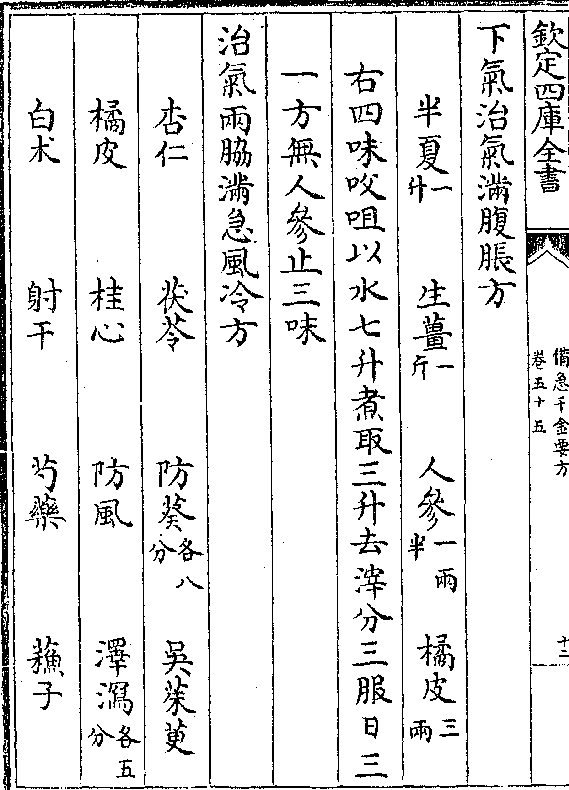 欽定四庫全書
備急千金要方
卷五十五
十二
下氣治氣滿腹脹方
半夏一升 生薑一斤 人參一兩半 橘皮三兩
右四味㕮咀以水七升煮取三升去滓分三服日三
一方無人參止三味
治氣兩脇滿急風冷方
杏仁 茯苓 防葵各八分 吳茱萸
橘皮 桂心 防風 澤瀉各五分
白术 射干 芍藥 蘓子